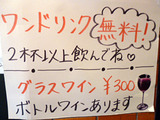 ワンドリンク無料!
2杯以上飲んでね♡
グラスワイン ¥300
ボトルワインあります